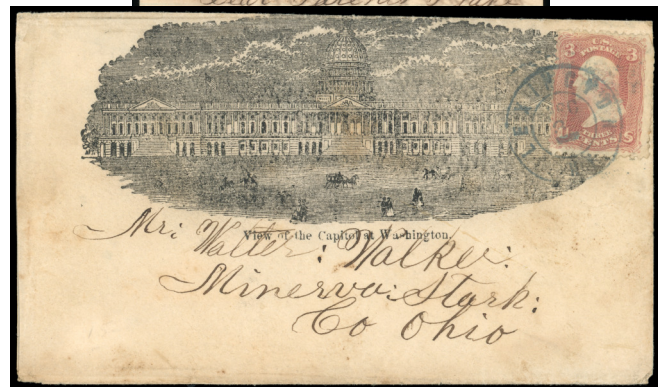 3 U.S. POSTAGE 3
THREE CENTS
View of the Capitol at Washington.
Mr: Walter: Walker:
Minerva: Stark:
Co Ohio